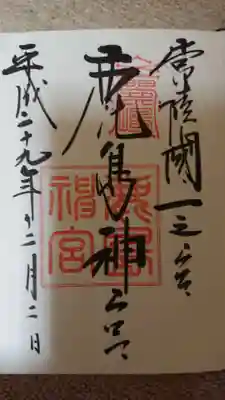 常陸國一之宮
鹿島神宮
鹿島
神宮
平成二十九年十二月二日